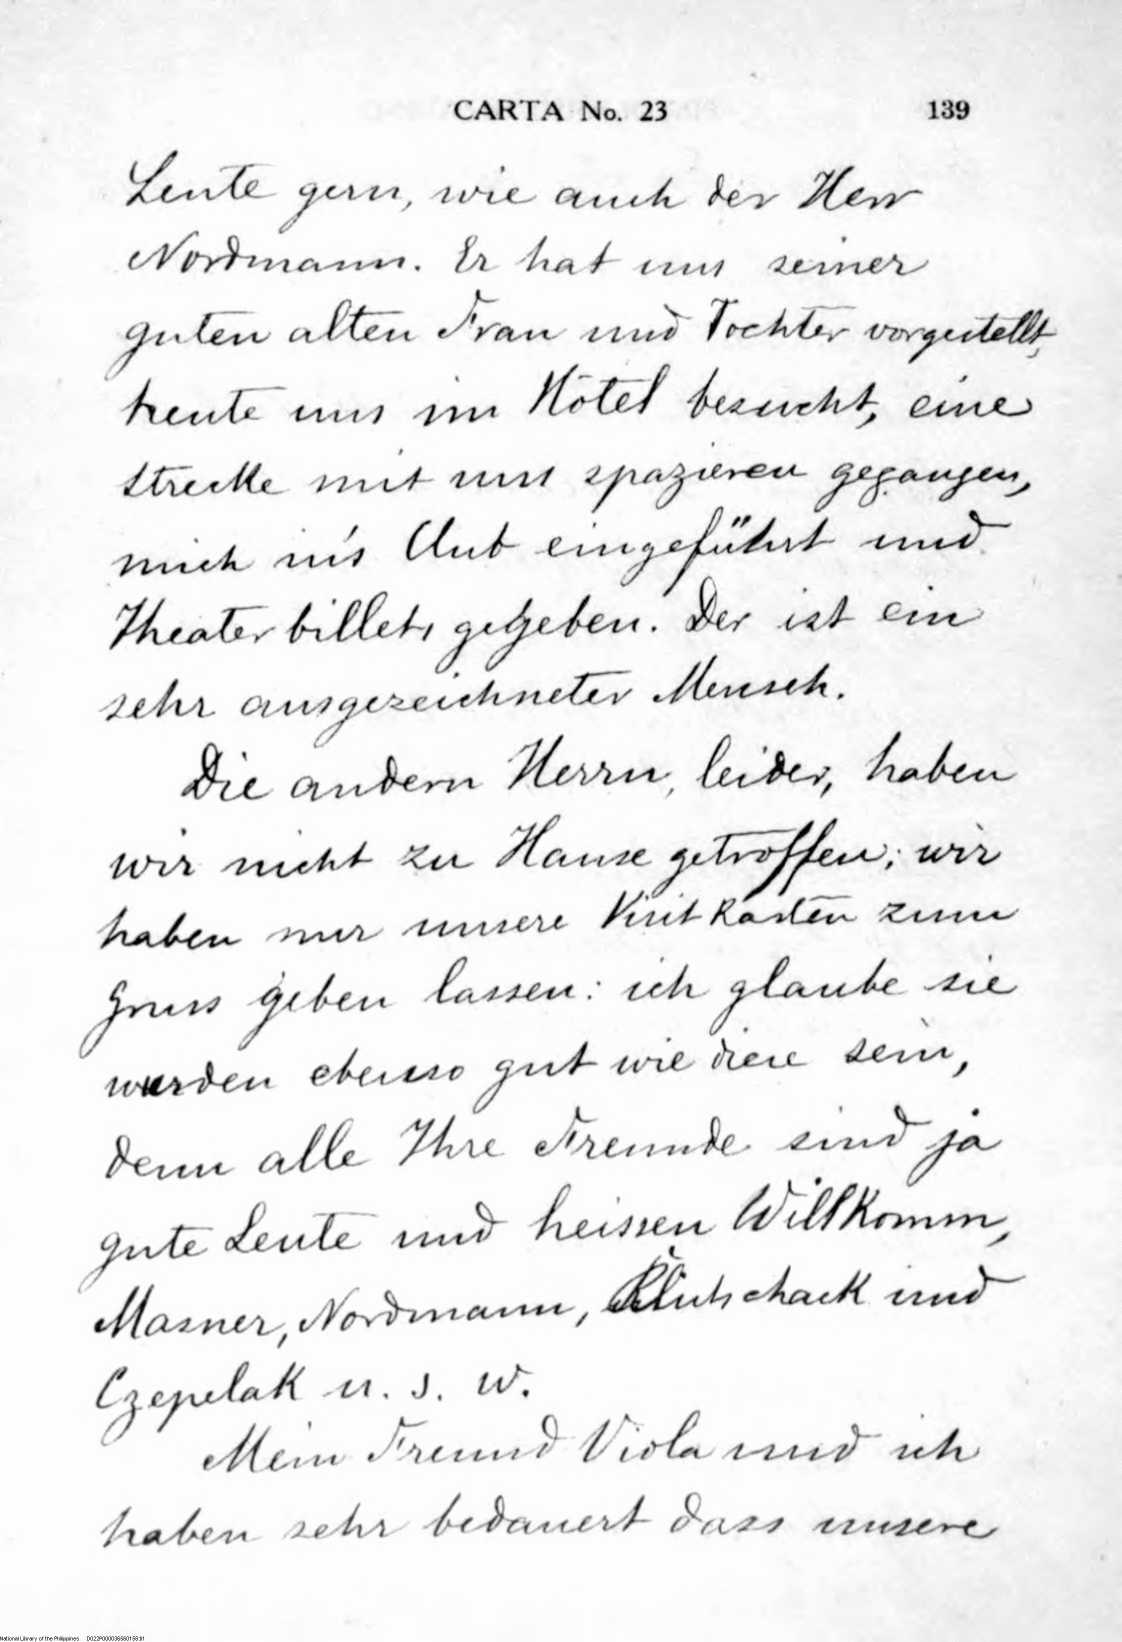 CARTA No. 23 139
Leute gern, wie auch der Herr
Nordmann. Er hat uns seiner
guten alten Frau und Tochter vorgestellt,
heute uns im Hôtel besucht, eine
strecke mit uns spazieren gegangen,
mich in's Club eingeführt und
Theaterbillets gegeben. Der ist ein
sehr ausgezeichneter Mensch.
Die andern Herrn, leider, haben
wir nicht zu Hause getroffen; wir
haben nur unsere Visitkarten zum
Gruss geben lassen: ich glaube sie
werden ebenso gut wie diese sein,
denn alle Ihre Freunde sind ja
gute Leute und heissen Willkomm,
Masner, Nordmann, Klutschack und
Czepelak u. s. w.
Mein Freund Viola und ich
haben sehr bedauert dass unsere
National Library of the Philippines